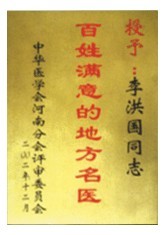 授予：李洪国同志
百姓满意的地方名医
中华医学会河南分会评审委员会
二〇〇二年十二月